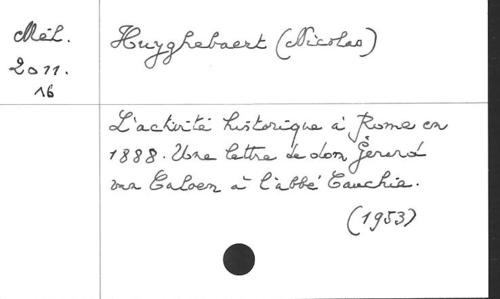 Mél.
2011.
16
Huyghebaert (Nicolas)
L'activité historique à Rome en
1888. Une lettre de dom Gérard
van Caloen à l'abbé Cauchie.
(1953)